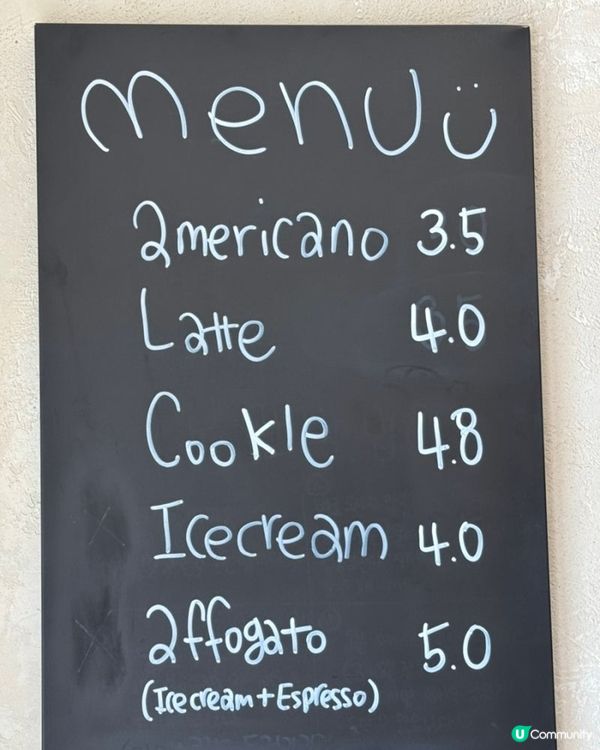 menu ü
americano 3.5
Latte 4.0
Cookie 4.8
Icecream 4.0
affogato 5.0
(Ice cream + Espresso)
U Community